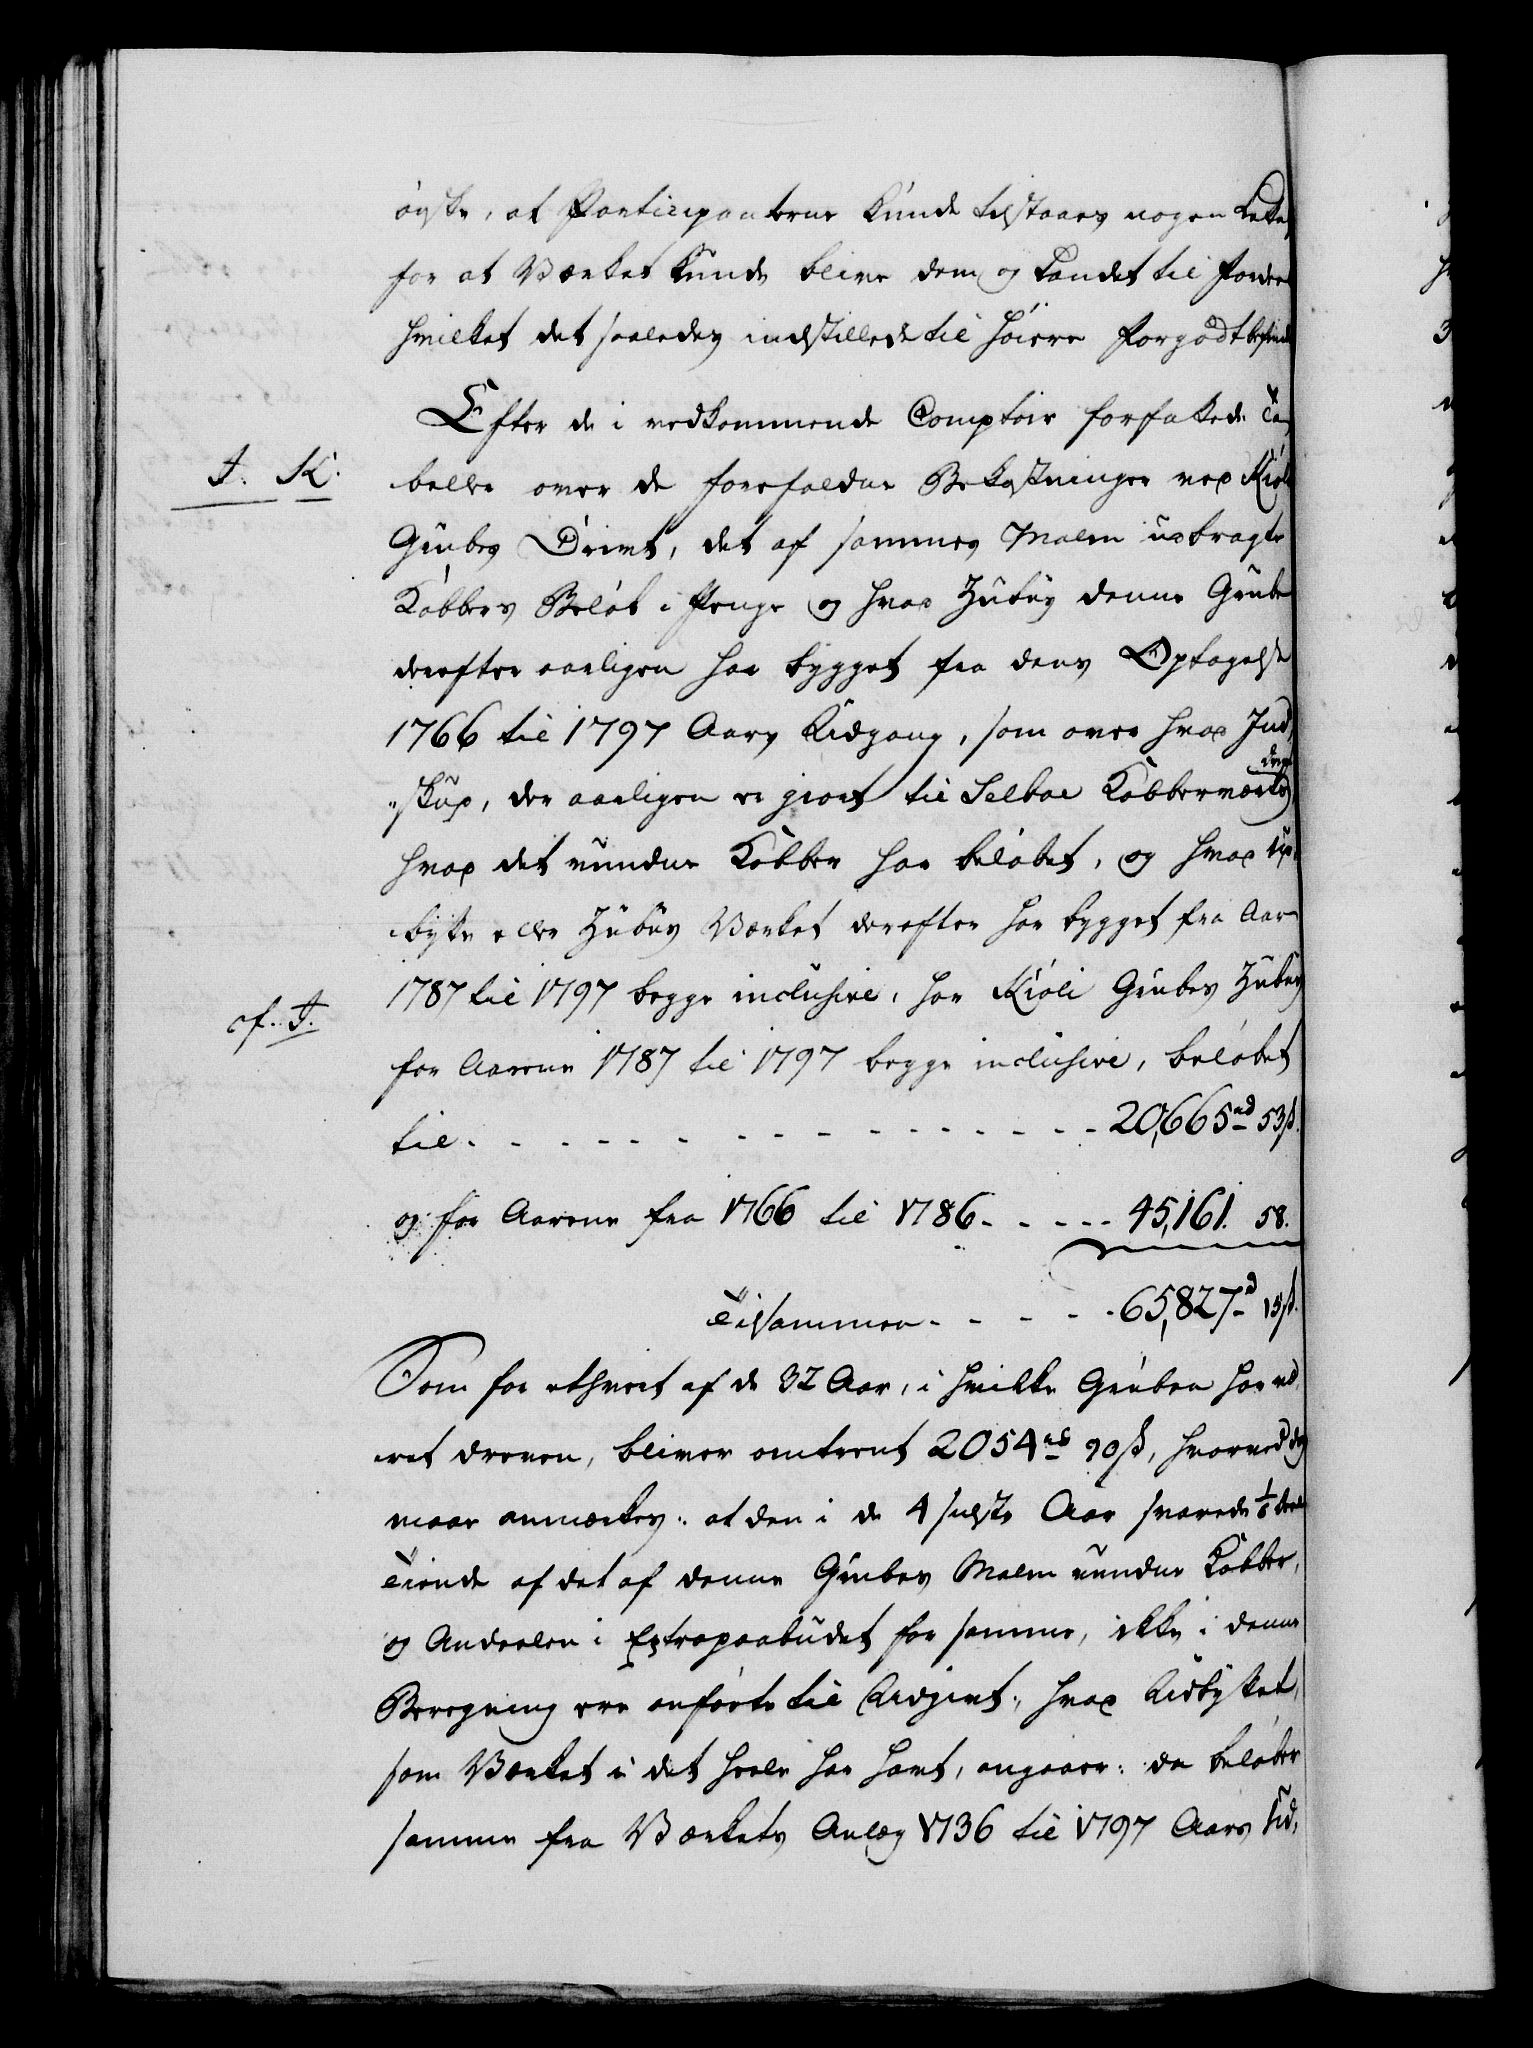 ønske, at Participanterne kunde tilstaaes nogen Lette,
for at Værket kunde blive dem og Landet til Fordeel
hvilket det saaledes indstillede til høiere Forgodtbefind
Efter de i vedkommende Comptoir forfattede Ta,
J. K.
beller over de forefaldne Bekostninger ved Kiøli
Grubes Drivt, det af sammes Malm udbragte
Kobbers Beløb i Penge og hvad Zubus denne Grube
derefter aarligen har bygget fra dens Optagelse
1766 til 1797 Aars Udgang, som over hvad Ind,
skud, der aarligen er giort til Selboe Kobberværks
Drivt
hvad det vundne Kobber har beløbet, og hvad Ud,
bytte eller Zubus Værket derefter har bygget fra Aar
1787 til 1797 begge inclusive, har Kiøli Grubes Zubus
cf. J.
for Aarene 1787 til 1797 begge inclusive, beløbet
til - - - - - - - - - - - - 20,665 rd 53 ß.
og for Aarene fra 1766 til 1786 - - - - - 45,161. 58.
Tilsammen - - - - - 65,827 rd 15 ß.
Som for ethvert af de 32 Aar, i hvilke Gruben har væ,
ret dreven, bliver omtrent 2054 rd 90 ß, hvorved dog
maae anmærkes: at den i de 4 sidste Aar svarede 1/6 deel
Tiende af det af denne Grubes Malm vundne Kobber,
og Andeelen i Extrapaabudet for samme, ikke i denne
Beregning ere anførte til Udgivt; hvad Udbyttet,
som Værket i det heele har havt, angaaer: da beløber
samme fra Værkets Anlæg 1736 til 1797 Aars Ud,